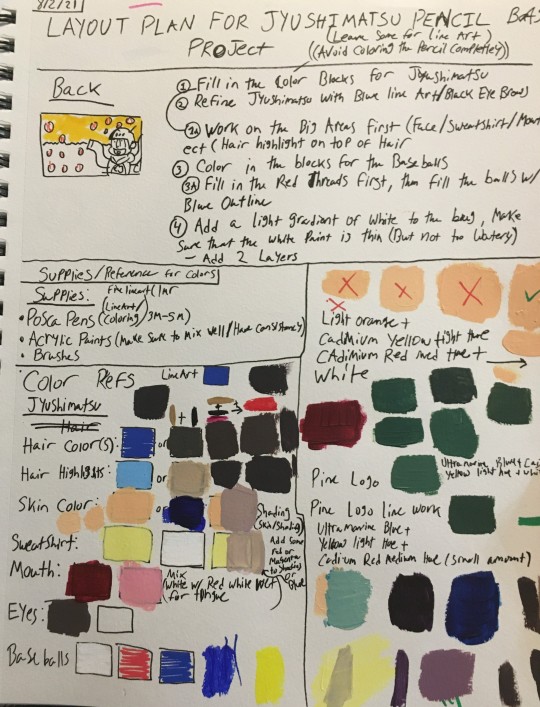 8/2/21
LAYOUT PLAN FOR JYUSHIMATSU PENCIL
PROJECT
(Leave Some for line Art)
((Avoid Coloring the Pencil Completley))
Back
① Fill in the Color Blocks for Jyushimatsu
② Refine Jyushimatsu with Blue line Art/Black Eye Brows
2A Work on the Big Areas First (Face/Sweatshirt/Mouth
ect (Hair highlight on top of Hair
③ Color in the blocks for the Baseballs
3A Fill in the Red Threads First, then fill the balls w/
Blue Outline
④ Add a light gradient of white to the bag, Make
Sure that the white Paint is thin (But not too Watery)
- Add 2 Layers
Supplies/Reference for Colors
Supplies:
(LineArt/
• Posca Pens (Coloring/3M-5M)
• Acrylic Paints (Make Sure to Mix well/Have Consistency)
• Brushes
Light orange +
Cadmium Yellow light hue
CAdmium Red med hue +
White
Color Refs
Line Art
Jyushimatsu
Hair
Hair Color(s): or
Hair Highlights: or
Skin Color: or
Shading
(Skin/Shading)
Sweatshirt:
Add some
Red or
Magenta
to Shading
or
Blue
Mouth:
Mix
(White w/ Red White
for tongue
Eyes:
Baseballs
Pine Logo
Ultramarine Blue +
Yellow light Hue + white
Pine Logo line work
Ultramarine Blue +
Yellow light Hue +
Cadium Red Medium Hue (Small amount)